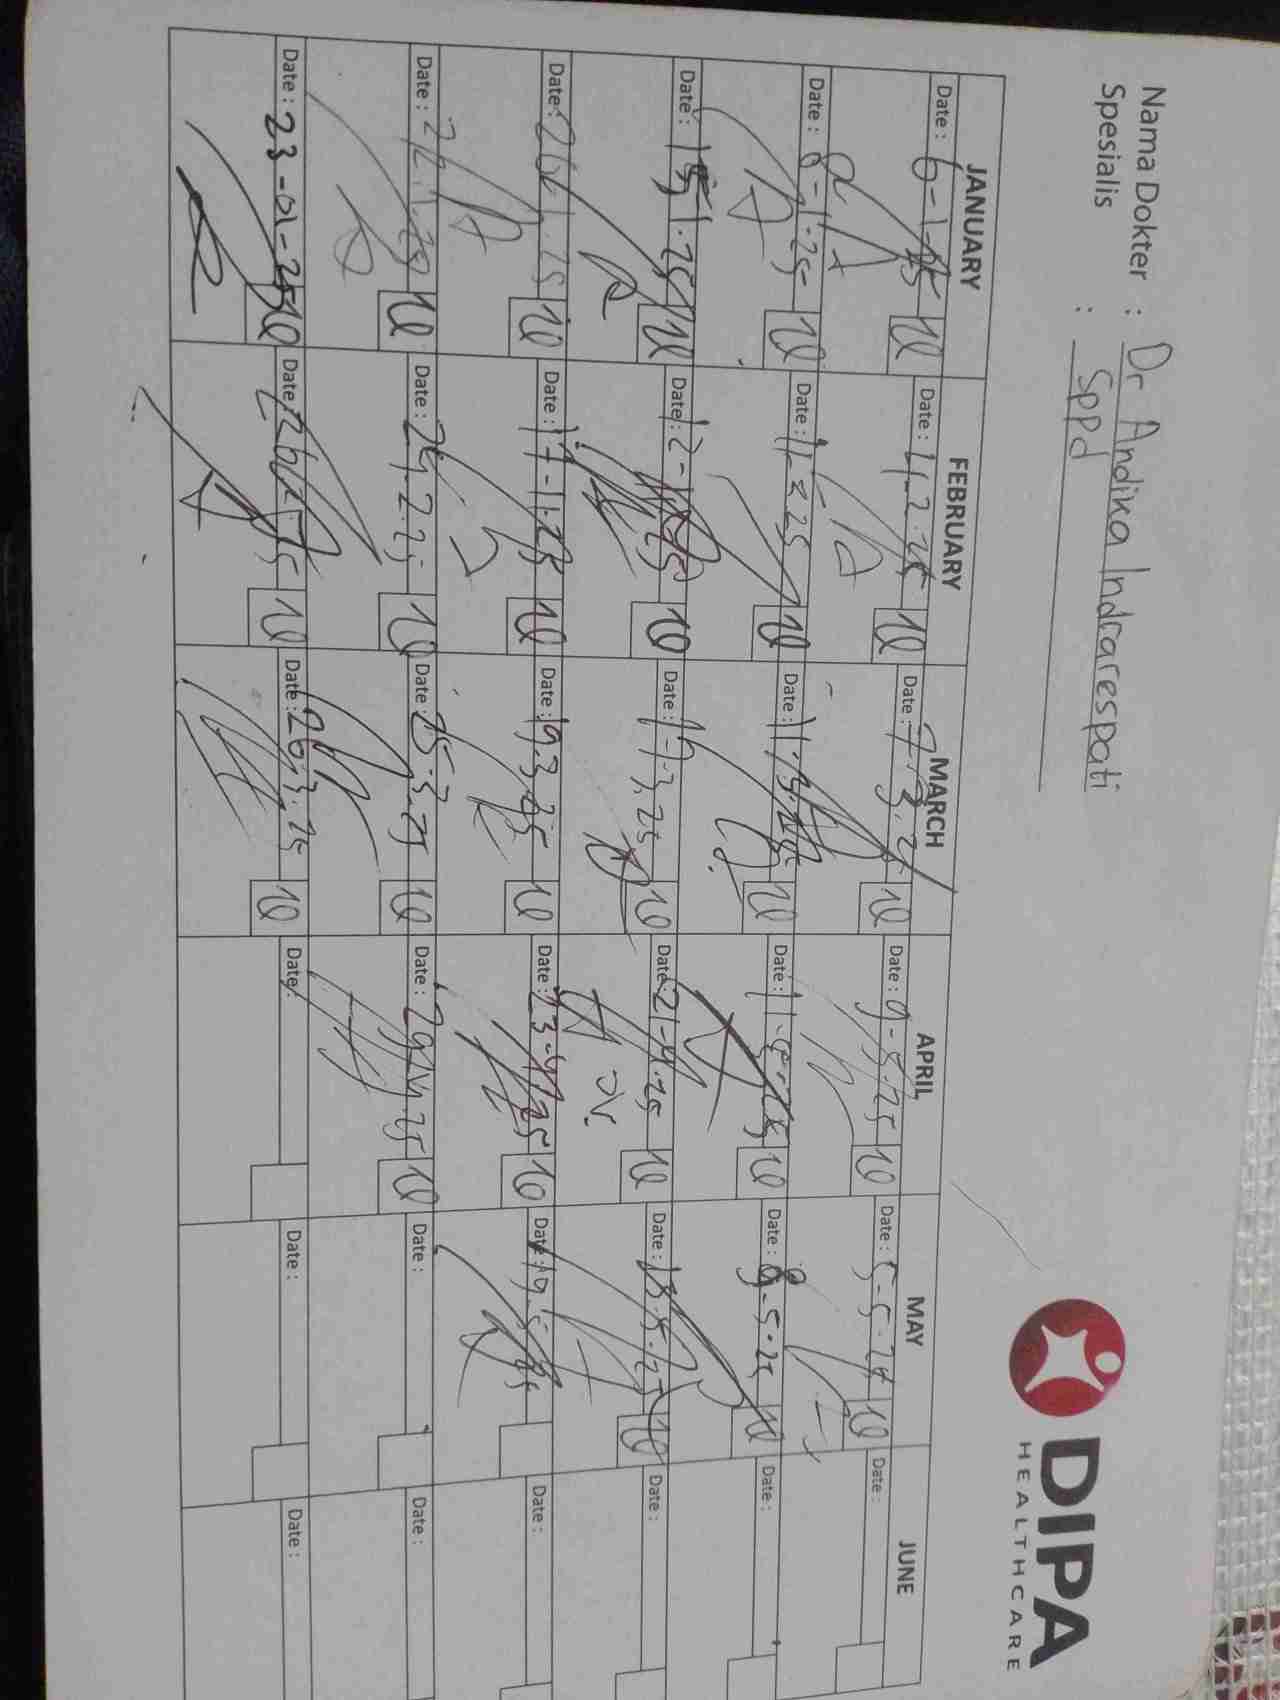 Nama Dokter : Dr Andika Indrarespati
Spesialis : Sppd
DIPA
HEALTHCARE
JANUARY FEBRUARY MARCH APRIL MAY JUNE
Date : 6-1-25 10 Date : 4.2.25 10 Date : 7.3.2 10 Date : 9-3.25 10 Date : 5-5-25 10 Date :
Date : 8-1-25 10 Date : 11-2.25 10 Date : 11. 10 Date : 11- 10 Date : 9-5-25 10 Date :
Date : 10 Date : 12- 10 Date : 17-3.25 10 Date : 21-4.25 10 Date : 10 Date :
Date : 10 Date : 17-1.25 10 Date : 19.3.25 10 Date : 23-4-25 10 Date : 19.5. Date :
Date : 10 Date : 24.2.25 10 Date : 25.3.25 10 Date : 29.4.25 10 Date : Date :
Date : 23-01-25 10 Date : 10 Date : 26.3.25 10 Date : Date : Date :